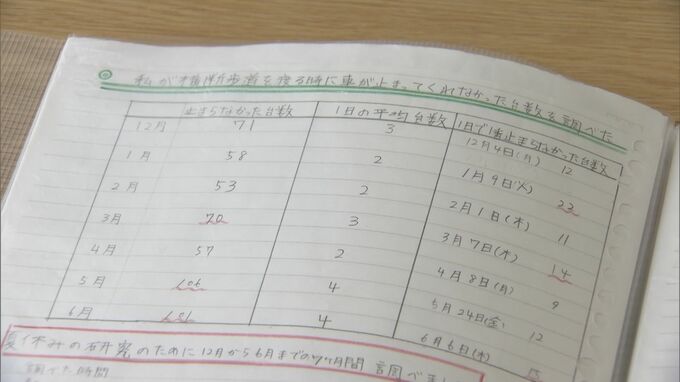 私が横断歩道を渡る時に車が止まってくれなかった台数を調べた
止まらなかった台数 1日の平均台数 1日で1番止まらなかった台数
12月 71 3 12月4日(月) 12
1月 58 2 1月9日(火) 23
2月 53 2 2月1日(木) 11
3月 70 3 3月7日(木) 14
4月 57 2 4月8日(月) 9
5月 106 4 5月24日(金) 12
6月 101 4 6月6日(木)
夏休みの研究のために12月から6月までの7ヶ月間 調べま
調べた時間